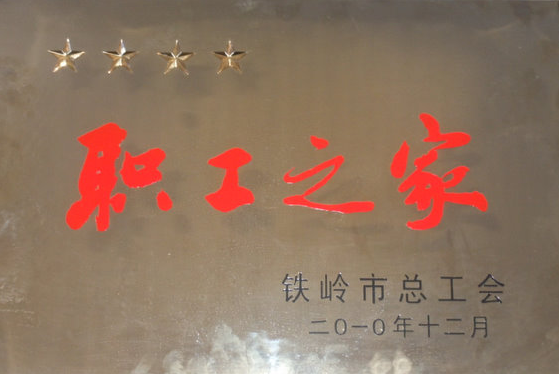 职工之家
铁岭市总工会
二〇一〇年十二月